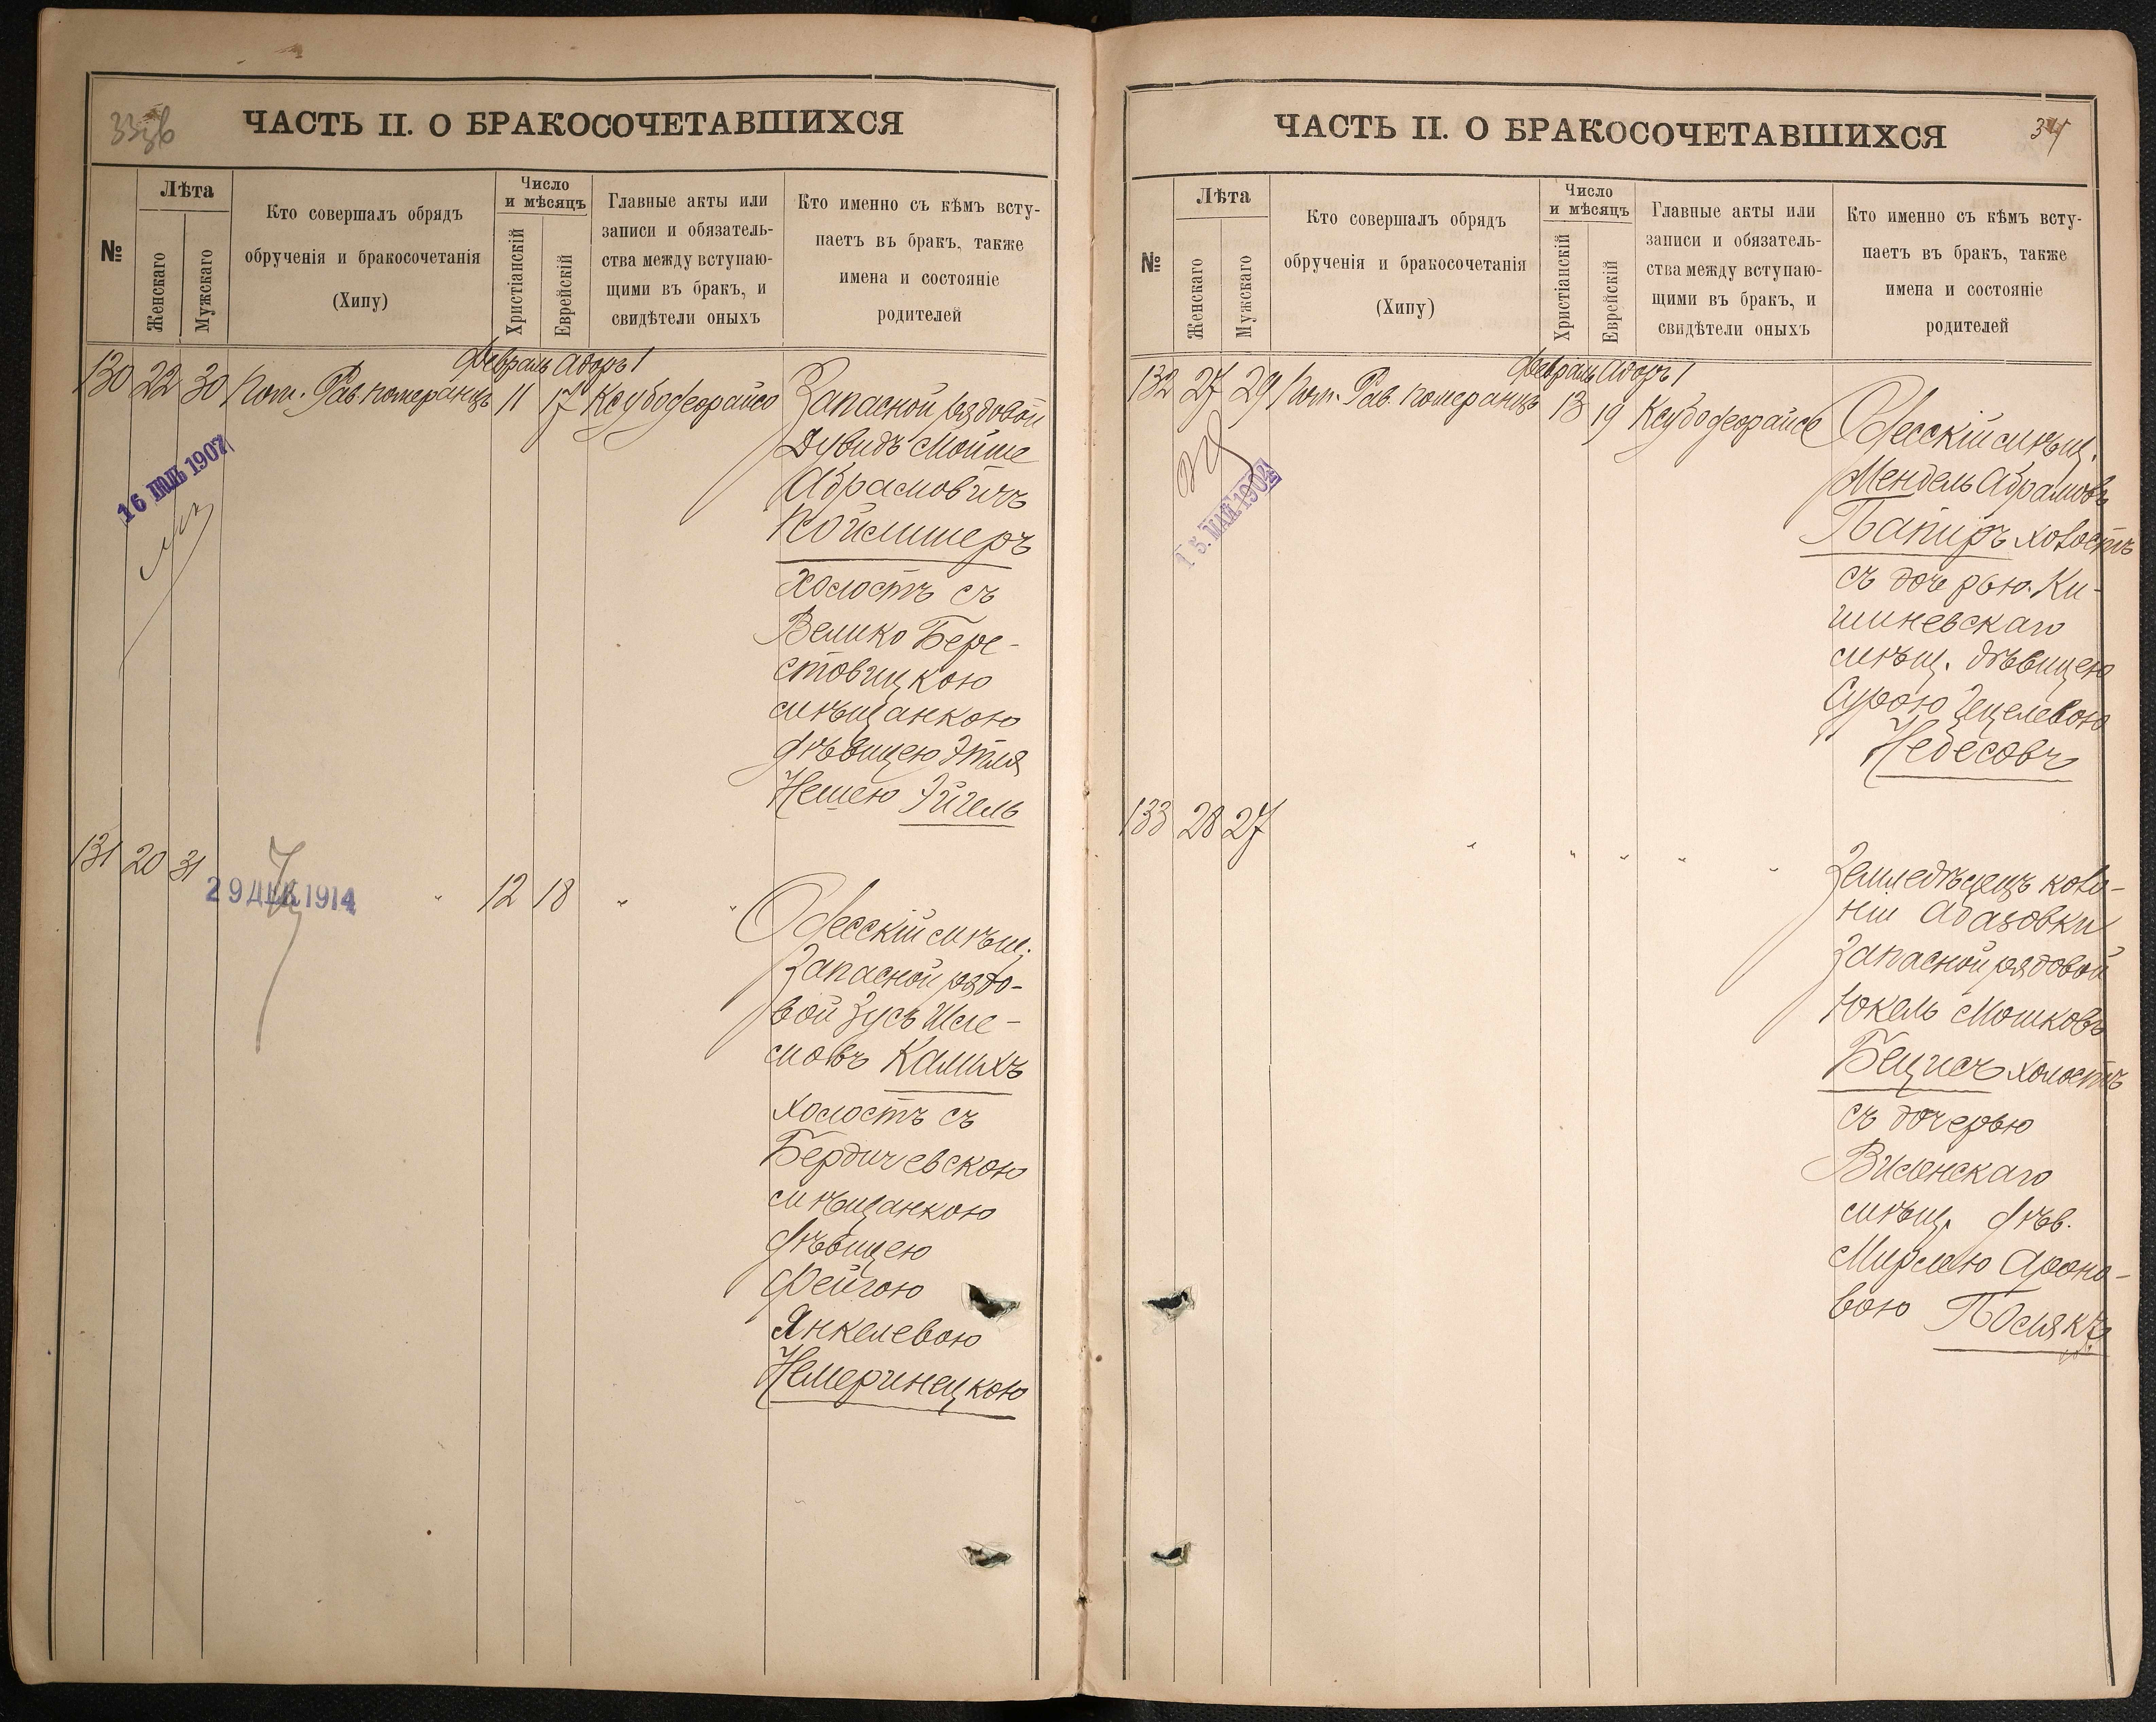 ЧАСТЬ II. О БРАКОСОЧЕТАВШИХСЯ
№
Лѣта
Женскаго
Мужскаго
Кто совершалъ обрядъ
обрученія и бракосочетанія
(Хипу)
Число
и мѣсяцъ
Христіанскій
Еврейскій
Главные акты или
записи и обязатель-
ства между вступаю-
щими въ бракъ, и
свидѣтели оныхъ
Кто именно съ кѣмъ всту-
паетъ въ бракъ, также
имена и состояніе
родителей
Февраль Адоръ I
130 22 30 Пом. Рав. Померанцъ 11 17 Ксубодеорайсо
Запасной рядовой
Дувидъ Мойше
Абрамовичъ
Койлишеръ
холостъ съ
Велико Бере-
стовицкою
мѣщанкою
дѣвицею Этля
Нешею Эйгель
16 ІЮЛЬ 1907
131 20 31 " 12 18 " "
29 ДЕК 1914
Одесскій мѣщ.
Запасной рядо-
вой Зусь Шле-
мовъ Калихъ
холостъ съ
Бердичевскою
мѣщанкою
дѣвицею
Фейгою
Янкелевою
Немеринецкою
ЧАСТЬ II. О БРАКОСОЧЕТАВШИХСЯ
34
№
Лѣта
Женскаго
Мужскаго
Кто совершалъ обрядъ
обрученія и бракосочетанія
(Хипу)
Число
и мѣсяцъ
Христіанскій
Еврейскій
Главные акты или
записи и обязатель-
ства между вступаю-
щими въ бракъ, и
свидѣтели оныхъ
Кто именно съ кѣмъ всту-
паетъ въ бракъ, также
имена и состояніе
родителей
Февраль Адоръ I
132 27 29 Пом. Рав. Померанцъ 13 19 Ксубодеорайсо
Одесскій мѣщ.
Мендель Абрамовъ
Папиръ холостъ
съ дочерью Ки-
шиневскаго
мѣщ. дѣвицею
Сурою Гецелевою
Небесовъ
15. МАЙ. 1904
133 28 27 " " " " "
Земледѣлецъ коло-
ніи Абазовки
Запасной рядовой
Юкель Мошковъ
Бецисъ холостъ
съ дочерью
Виленскаго
мѣщ. дѣв.
Мирлею Ароно-
вою Полякъ